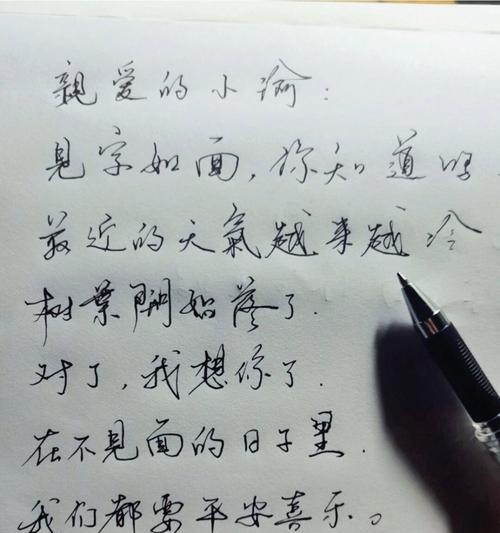 親爱的小瑜：
見字如面，你知道吗
最近的天氣越来越冷
树葉開始落了.
对了，我想你了.
在不見面的日子里.
我们都要平安喜乐。